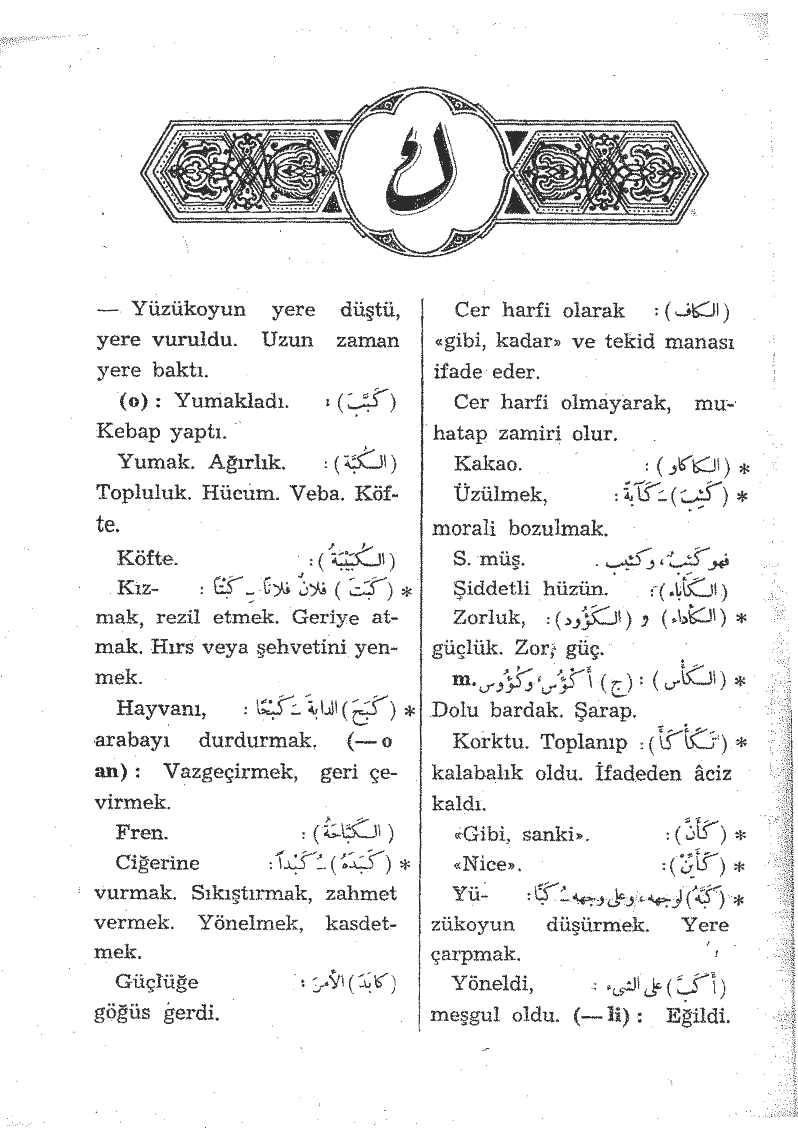 ك
(الكاف) : Cer harfi olarak
«gibi, kadar» ve tekid manası
ifade eder.
Cer harfi olmayarak, mu-
hatap zamiri olur.
* (الكاكاو) : Kakao.
* (كَئِبَ) ـَ كَآبَةً : Üzülmek,
morali bozulmak.
فهو كَئِبٌ، وكئيب . S. müş.
(الكَأْباء) : Şiddetli hüzün.
* (الكَأْداء) و (الكَؤُود) : Zorluk,
güçlük. Zor, güç.
* (الكَأْس) : (ج) أَكْؤُس، وكُؤُوس . m.
Dolu bardak. Şarap.
* (تَكَأْكَأَ) : Korktu. Toplanıp
kalabalık oldu. İfadeden âciz
kaldı.
* (كَأَنَّ) : «Gibi, sanki».
* (كَأَيِّنْ) : «Nice».
* (كَبَّهُ) لوجهه، وعلى وجهه ـُ كَبًّا : Yü-
zükoyun düşürmek. Yere
çarpmak.
(أَكَبَّ) على الشىء : Yöneldi,
meşgul oldu. (—li) : Eğildi.
— Yüzükoyun yere düştü,
yere vuruldu. Uzun zaman
yere baktı.
(كَبَّبَ) : (o) : Yumakladı.
Kebap yaptı.
(الكُبَّة) : Yumak. Ağırlık.
Topluluk. Hücum. Veba. Köf-
te.
(الكُبَيْبَةُ) : Köfte.
* (كَبَتَ) فلانٌ فلاناً ـِ كَبْتًا : Kız-
mak, rezil etmek. Geriye at-
mak. Hırs veya şehvetini yen-
mek.
* (كَبَحَ) الدابةَ ـَ كَبْحًا : Hayvanı,
arabayı durdurmak. (—o
an) : Vazgeçirmek, geri çe-
virmek.
(الكَبَّاحَةُ) : Fren.
* (كَبَدَهُ) ـُ كَبْداً : Ciğerine
vurmak. Sıkıştırmak, zahmet
vermek. Yönelmek, kasdet-
mek.
(كابَدَ) الأمرَ : Güçlüğe
göğüs gerdi.